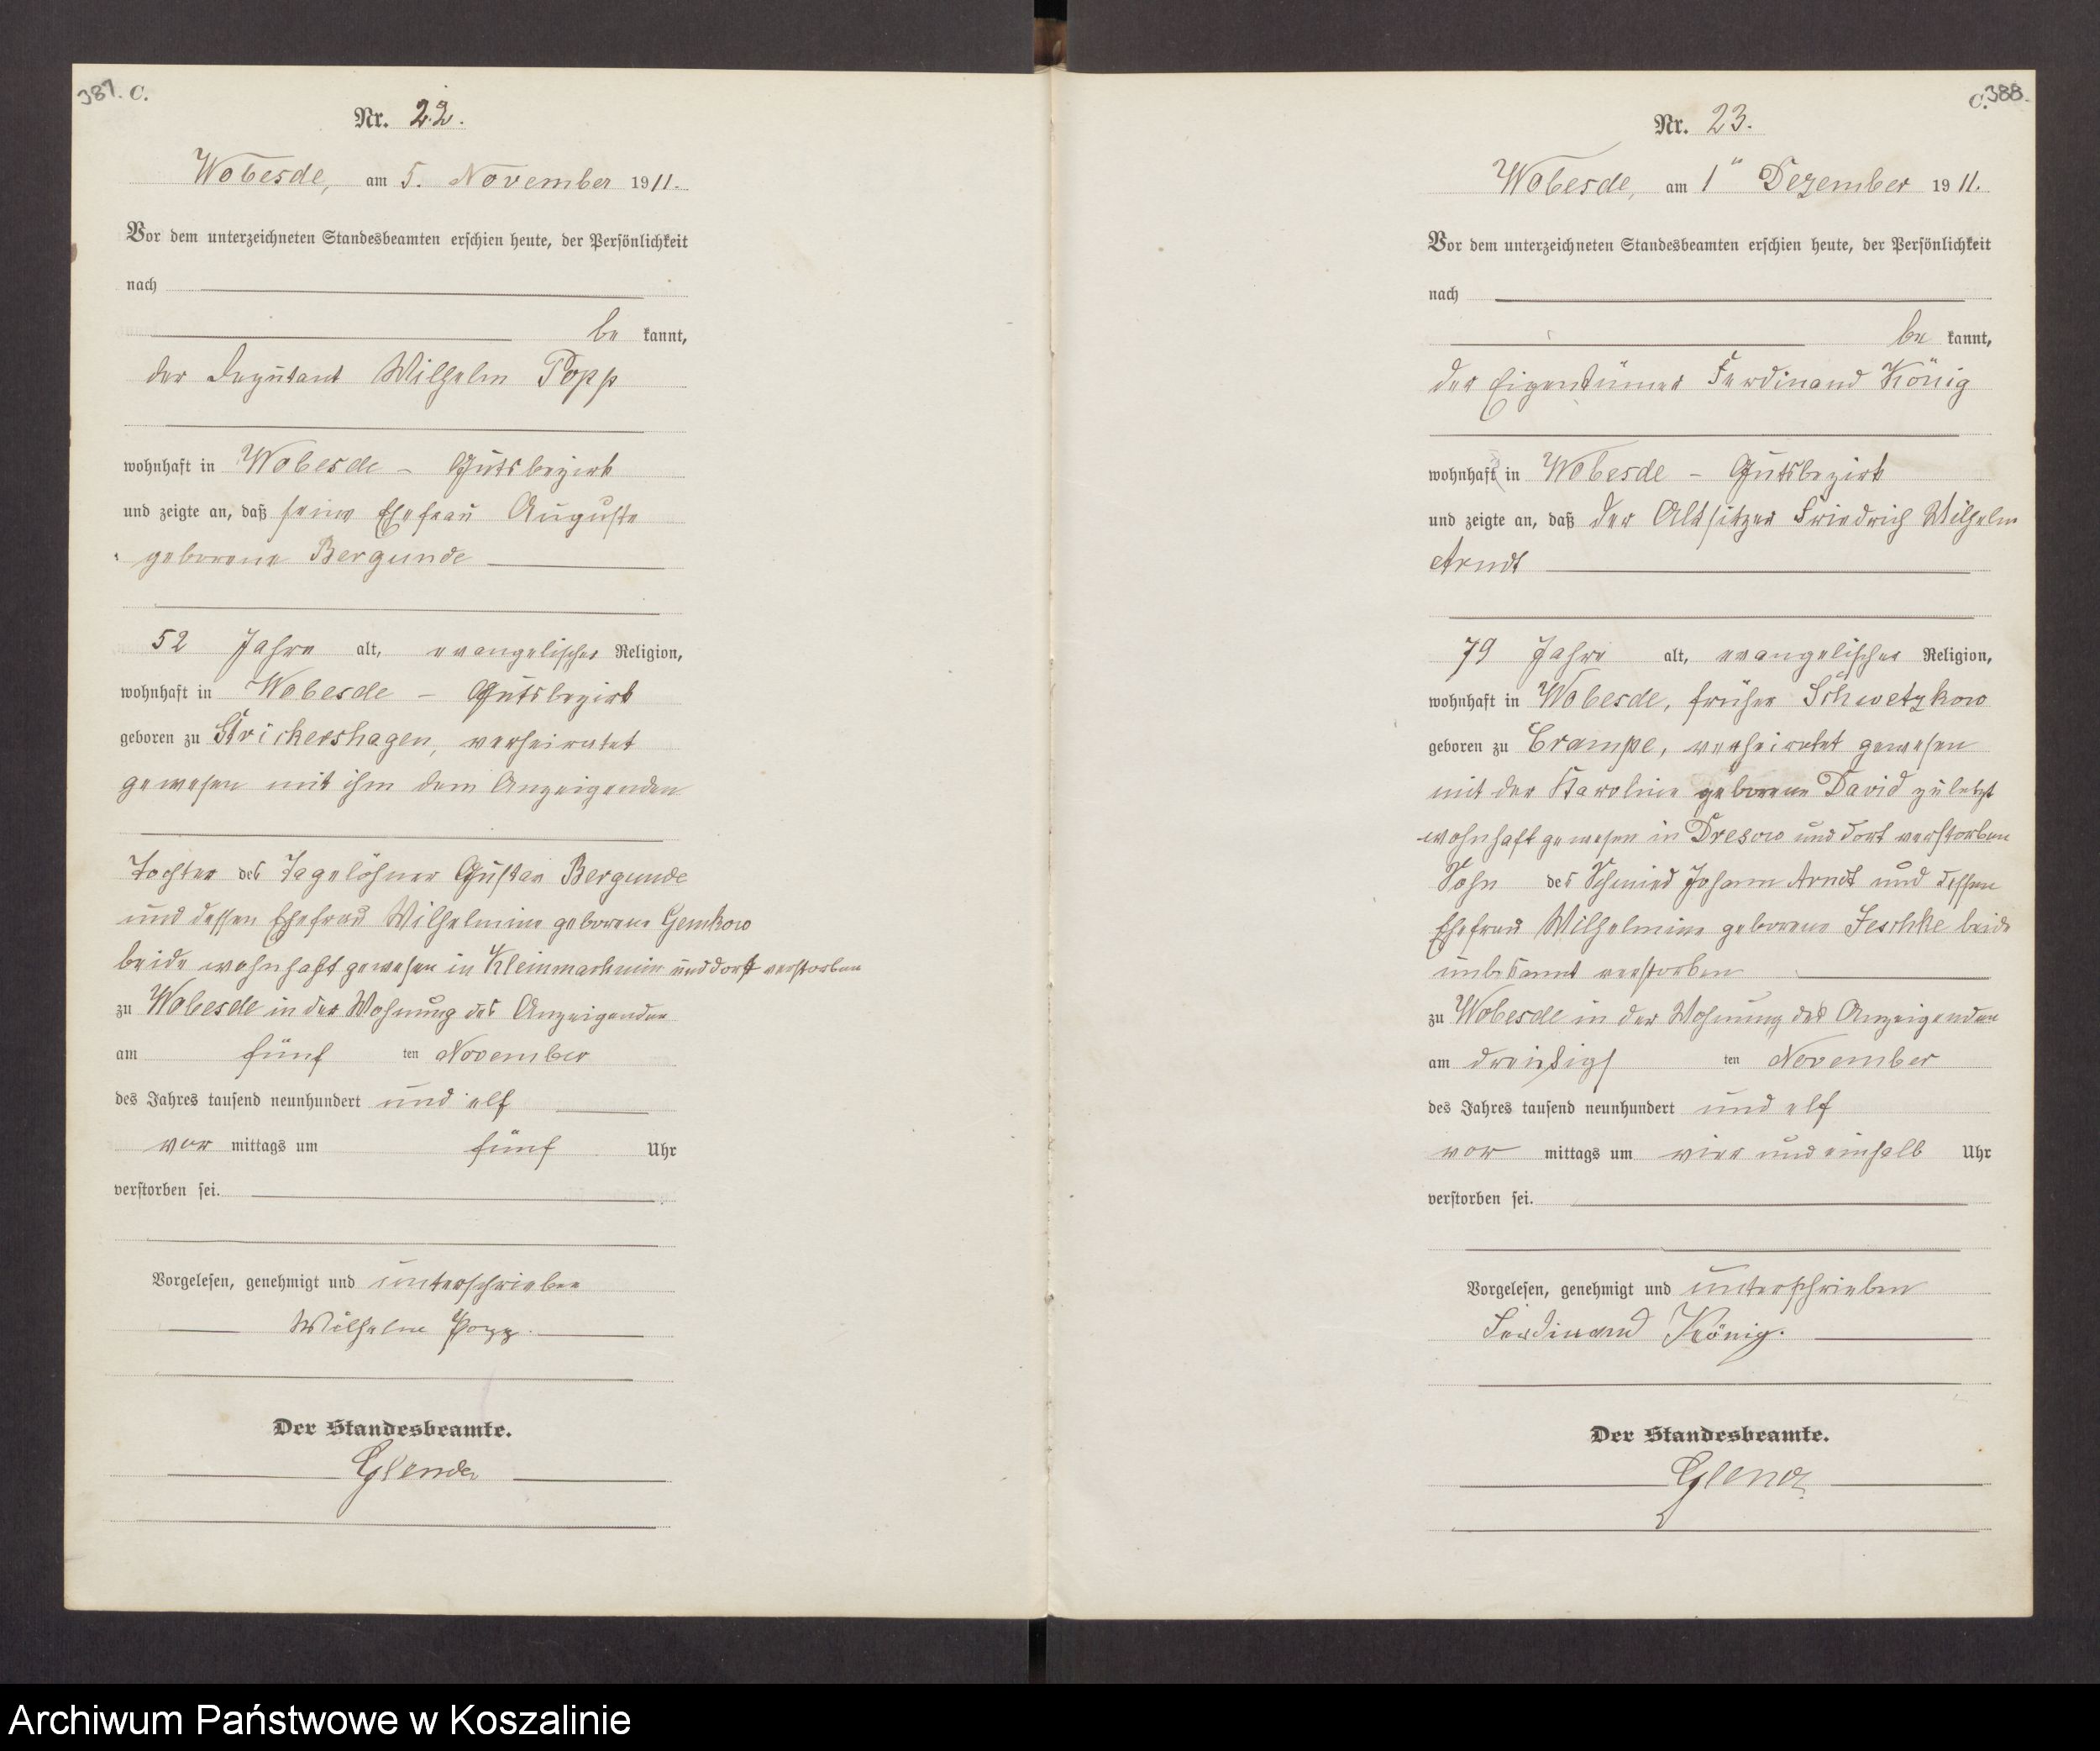 387. C.
Nr. 22.
Wobesde, am 5. November 1911.
Vor dem unterzeichneten Standesbeamten erschien heute, der Persönlichkeit
nach
be kannt,
der Deputant Wilhelm Popp
wohnhaft in Wobesde - Gutsbezirk
und zeigte an, daß seine Ehefrau Auguste
geborene Bergunde
52 Jahre alt, evangelischer Religion,
wohnhaft in Wobesde - Gutsbezirk
geboren zu Strickershagen, verheiratet
gewesen mit ihm dem Anzeigenden
Tochter des Tagelöhner Gustav Bergunde
und dessen Ehefrau Wilhelmine geborene Gemkow
beide wohnhaft gewesen in Kleinmachmin und dort verstorben
zu Wobesde in der Wohnung des Anzeigenden
am fünf ten November
des Jahres tausend neunhundert und elf
vor mittags um fünf Uhr
verstorben sei.
Vorgelesen, genehmigt und unterschrieben
Wilhelm Popp.
Der Standesbeamte.
C. 388.
Nr. 23.
Wobesde, am 1" Dezember 1911.
Vor dem unterzeichneten Standesbeamten erschien heute, der Persönlichkeit
nach
be kannt,
der Eigentümer Ferdinand König
wohnhaft in Wobesde - Gutsbezirk
und zeigte an, daß der Altsitzer Friedrich Wilhelm
Arndt
79 Jahre alt, evangelischer Religion,
wohnhaft in Wobesde, früher Schwetzkow
geboren zu Crampe, verheiratet gewesen
mit der Karoline geborene David zuletzt
wohnhaft gewesen in Dresow und dort verstorben
Sohn des Schmied Johann Arndt und dessen
Ehefrau Wilhelmine geborene Jeschke beide
unbekannt verstorben
zu Wobesde in der Wohnung des Anzeigenden
am dreißigs ten November
des Jahres tausend neunhundert und elf
vor mittags um vier und einhalb Uhr
verstorben sei.
Vorgelesen, genehmigt und unterschrieben
Ferdinand König.
Der Standesbeamte.
Archiwum Państwowe w Koszalinie